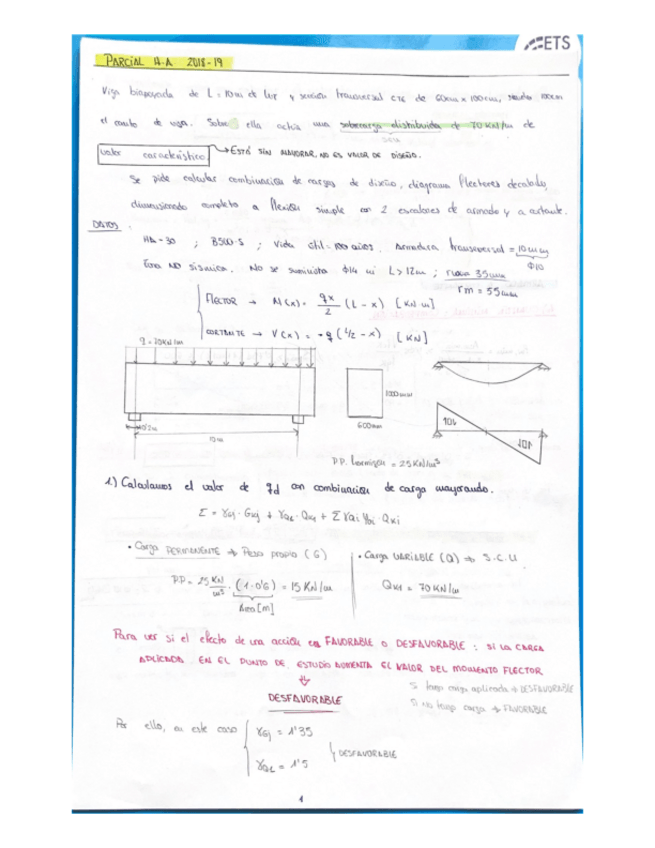 ETS
PARCIAL H.A. 2018-19
Viga biapoyada de L = 10m de luz y sección transversal cte de 60cm x 100cm, siendo 100cm
el canto de viga. Sobre ella actúa una sobrecarga distribuida de 70 KN/m de
SCU
valor característico. → ESTÁ SIN MAYORAR, NO ES VALOR DE DISEÑO.
Se pide calcular combinación de cargas de diseño, diagrama flectores decalado,
dimensionado completo a flexión simple con 2 escalones de armado y a cortante.
DATOS
HA-30 ; B500-S ; Vida útil = 100 años. Armadura transversal = 10mm
Zona NO sísmica. No se suministra Φ14 ni L > 12m ; rnom 35mm
Φ10
rm = 55mm
FLECTOR → M(x) = qx/2 (L - x) [KN m]
CORTANTE → V(x) = -q (L/2 - x) [KN]
q = 70KN/m
1000mm
600mm
10m
P.P. hormigón = 25 KN/m³
1.) Calculamos el valor de qd con combinación de carga mayorando.
Σ = γGj · Gkj + γQ1 · Qk1 + Σ γQi ψ0i · Qki
• Carga PERMANENTE → Peso propio (G)
• Carga VARIABLE (Q) → S.C.U
P.P = 25 KN/m³ · (1 · 0'6) = 15 KN/m
Área [m]
Qk1 = 70 KN/m
Para ver si el efecto de una acción es FAVORABLE o DESFAVORABLE : SI LA CARGA
APLICADA EN EL PUNTO DE ESTUDIO AUMENTA EL VALOR DEL MOMENTO FLECTOR
⇓
DESFAVORABLE
Si tengo carga aplicada → DESFAVORABLE
Si no tengo carga → FAVORABLE
Por ello, en este caso
γGj = 1'35
γQ1 = 1'5
DESFAVORABLE
1